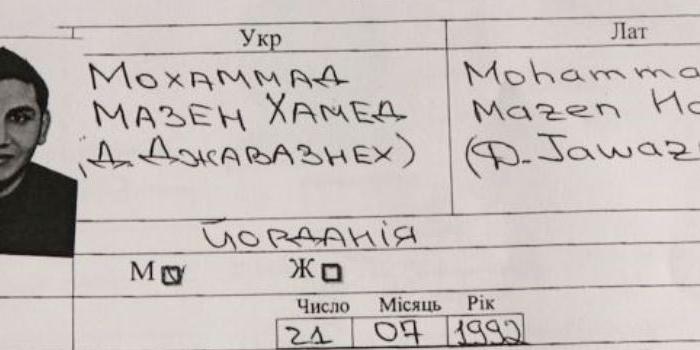 Укр Лат
Мохаммад Mohamma
Мазен Хамед Mazen Ha
(Д. Джавазнех) (D. Jawaz
Йорданія
М Ж
Число Місяць Рік
21 07 1992